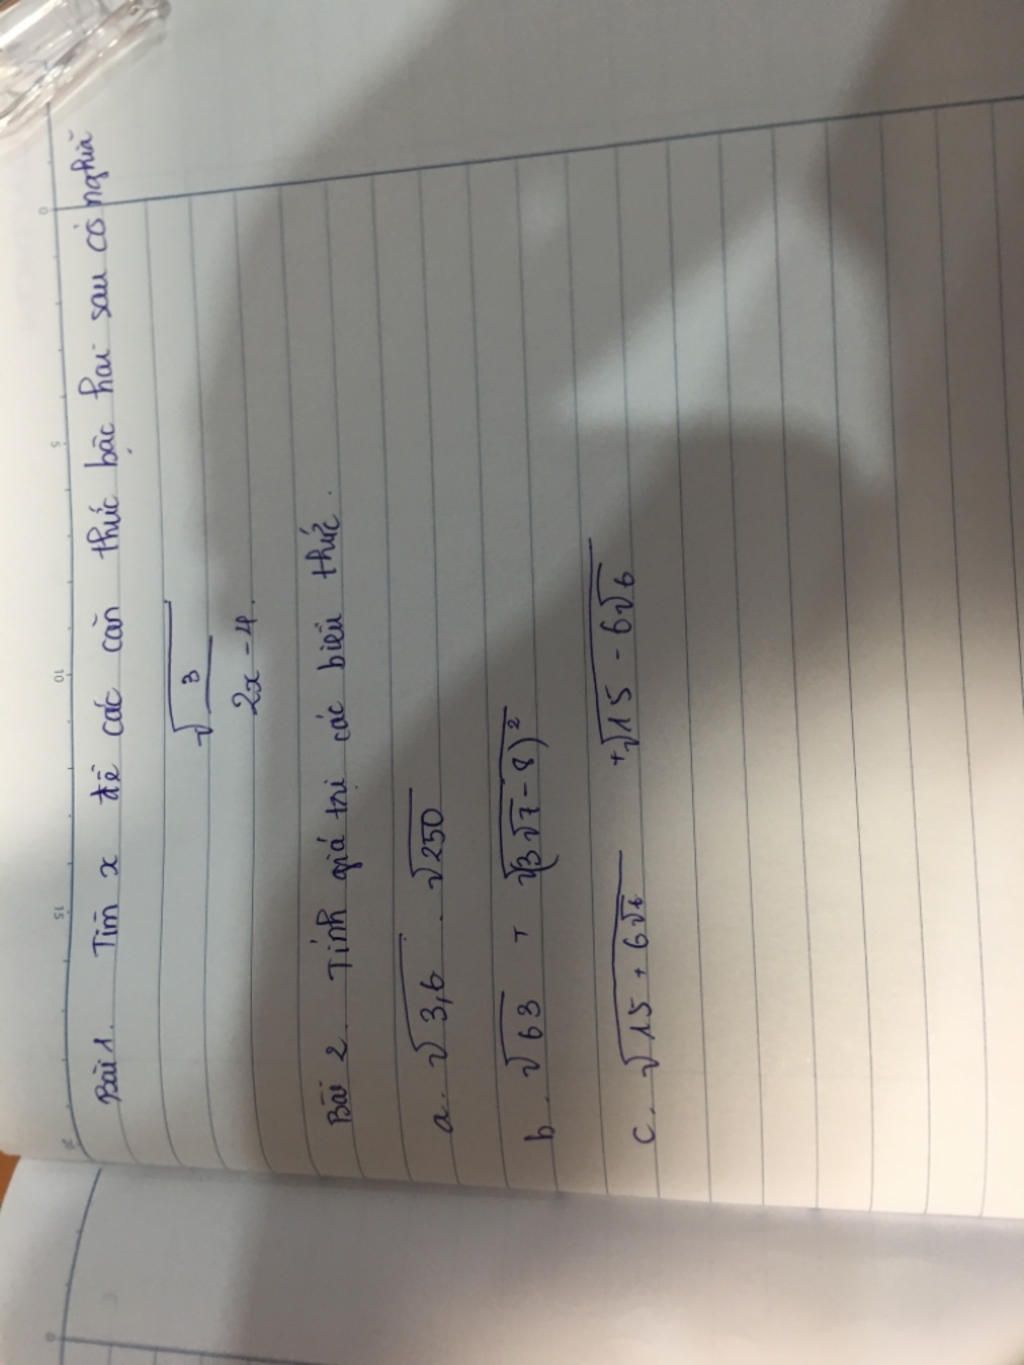 Bài 1. Tìm x để các căn thức bậc hai sau có nghĩa
√(3/(2x - 4)).
Bài 2. Tính giá trị các biểu thức.
a. √3,6 . √250
b. √63 + √(3√7 - 8)²
c. √(15 + 6√6) + √(15 - 6√6)